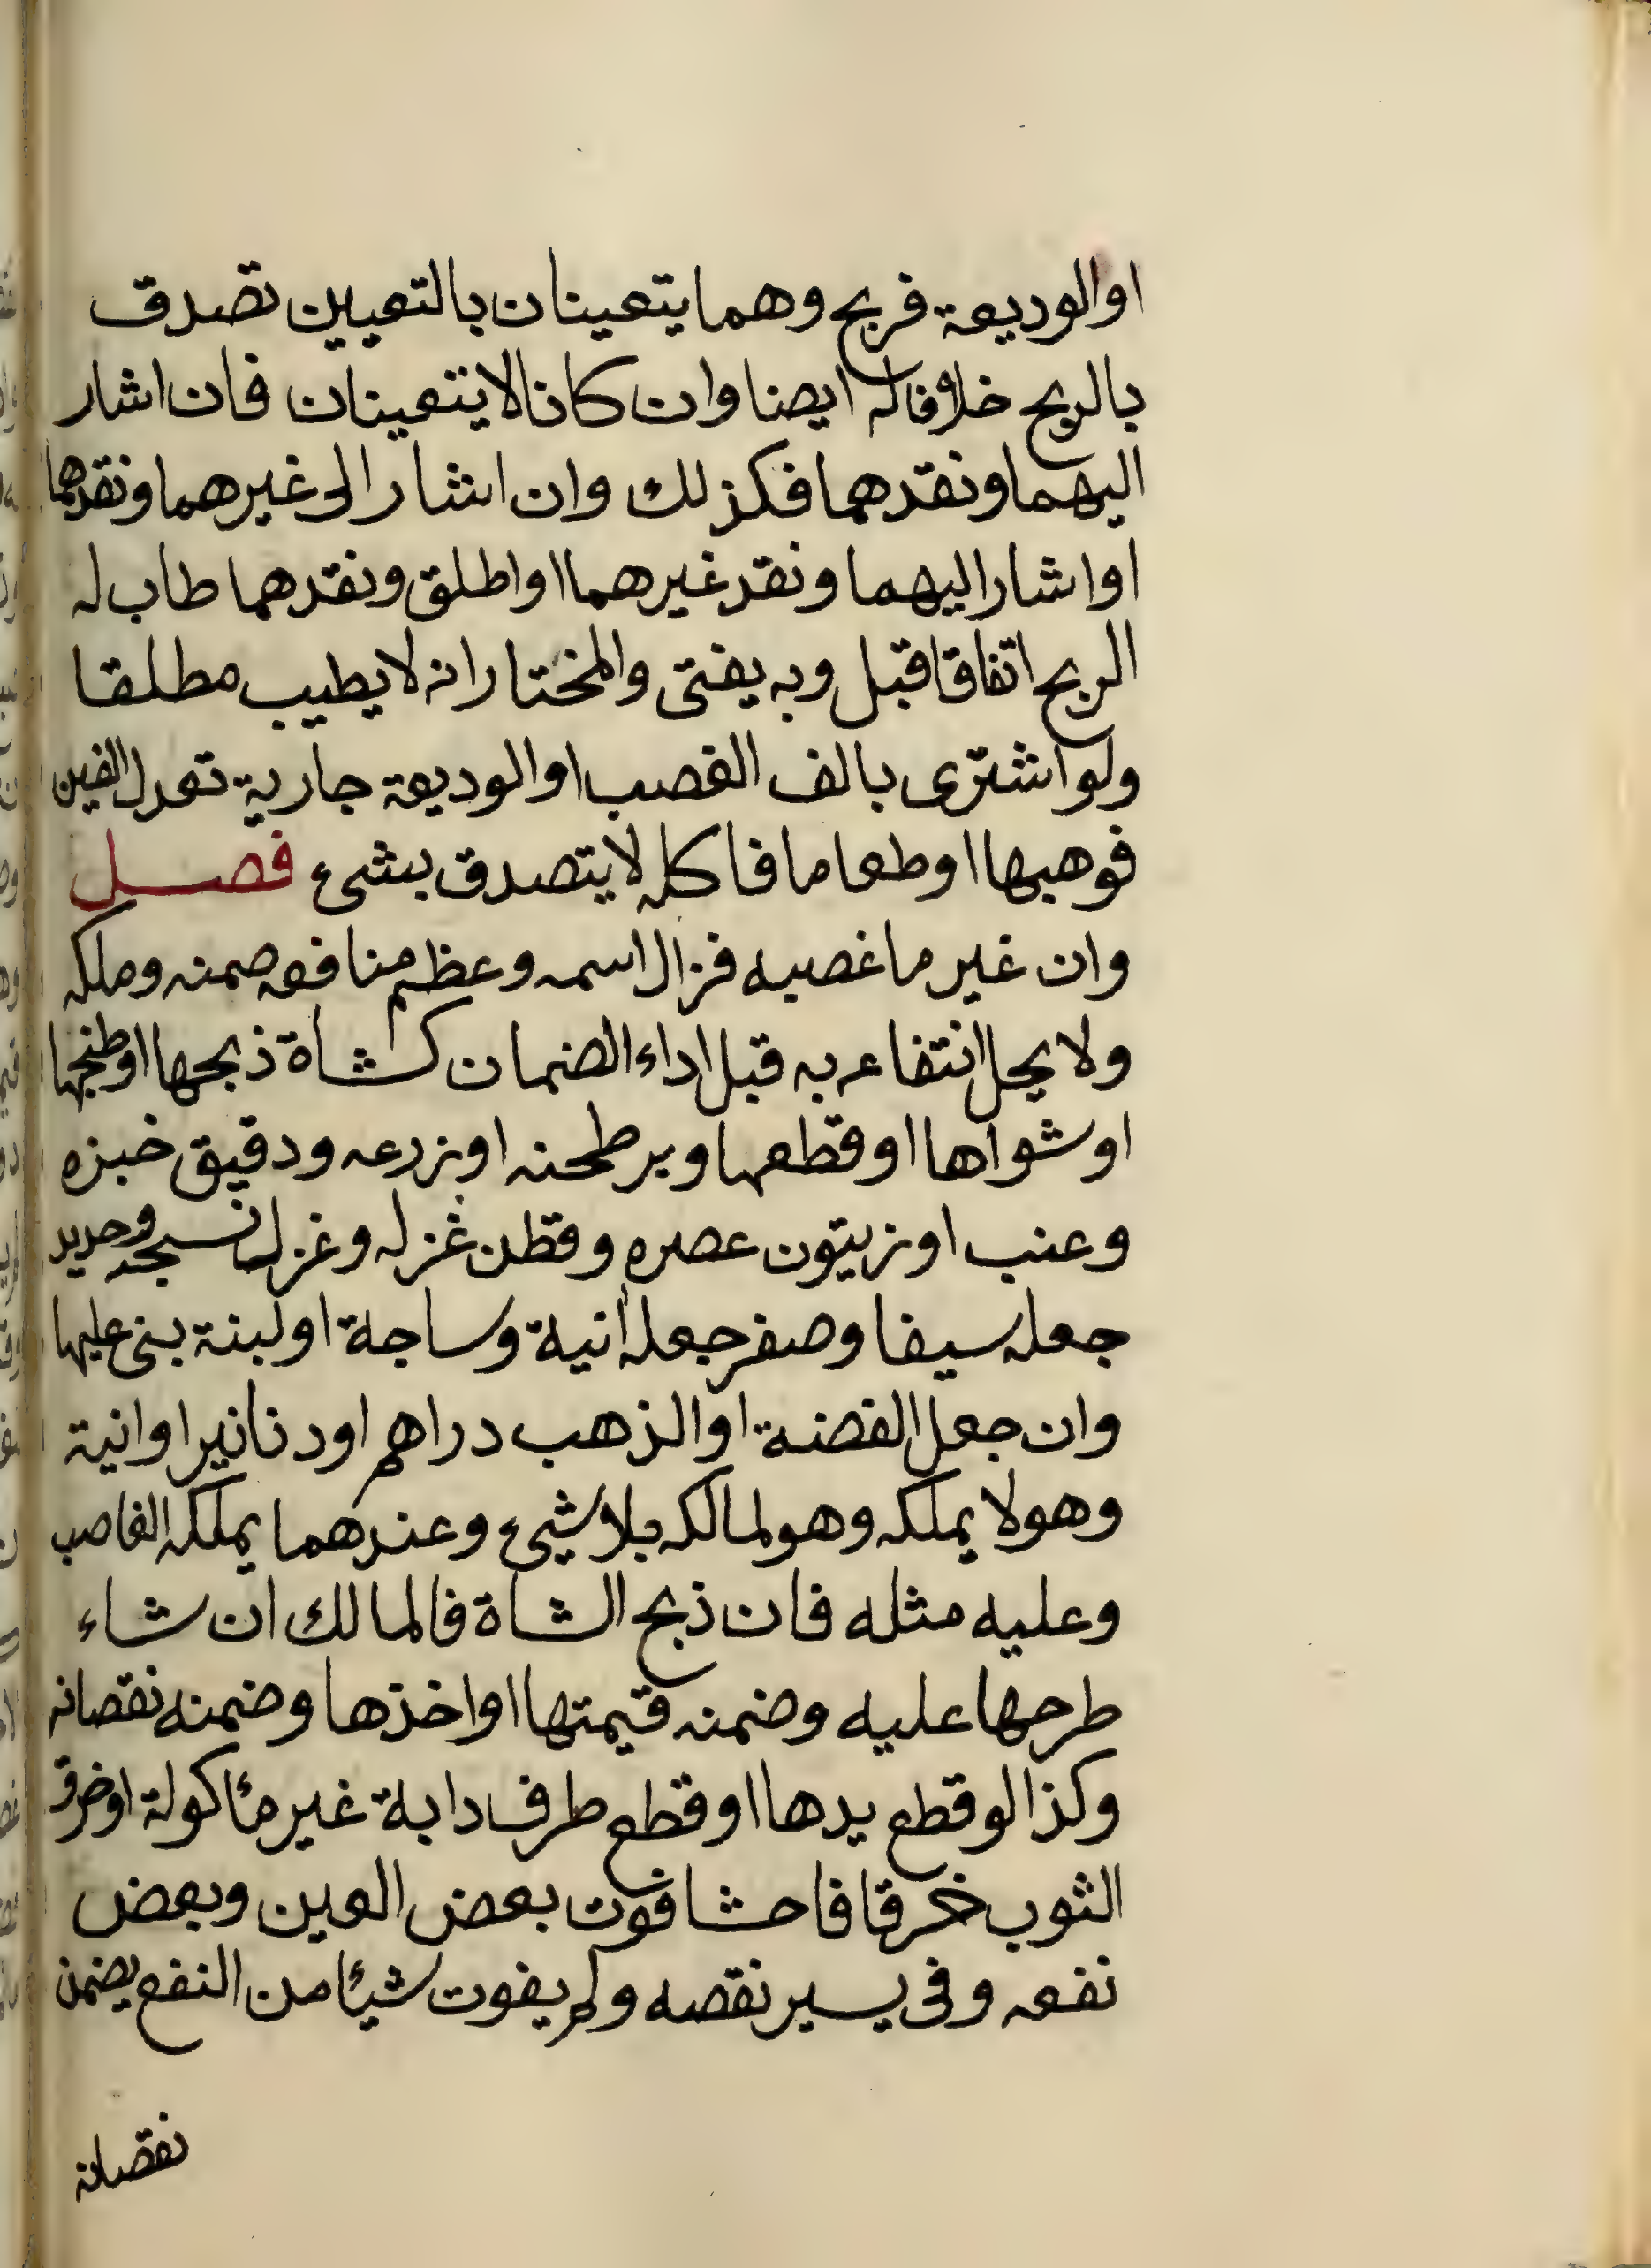 او الوديعة فربح وهما يتعينان بالتعيين تصدق
بالربح خلافا له ايضا وان كانا لا يتعينان فان اشار
اليهما ونقدهما فكذلك وان اشار الى غيرهما ونقدهما
او اشار اليهما ونقد غيرهما او اطلق ونقدهما طاب له
الربح اتفاقا قبل وبه يفتى والمختار انه لا يطيب مطلقا
ولو اشترى بالف الغصب او الوديعة جارية تعدل الفين
فوهبها او طعاما فاكله لا يتصدق بشئ فصل
وان غير ما غصبه فزال اسمه وعظم منافعه ضمنه وملكه
ولا يحل انتفاعه به قبل اداء الضمان كشاة ذبحها او طبخها
او شواها او قطعها وبر طحنه او زرعه ودقيق خبزه
وعنب او زيتون عصره وقطن غزله وغزل نسجه وحديد
جعله سيفا وصفر جعله انية وساجة او لبنة بنى عليها
وان جعل الفضة او الذهب دراهم او دنانير او انية
وهو لا يملكه وهو لمالكه بلا شيئ وعندهما يملكه الغاصب
وعليه مثله فان ذبح الشاة فالمالك ان شاء
طرحها عليه وضمنه قيمتها او اخذها وضمنه نقصانه
وكذا لو قطع يدها او قطع طرف دابة غير مأكولة او خرق
الثوب خرقا فاحشا فوت بعض العين وبعض
نفعه وفى يسير نقصه ولم يفوت شيئا من النفع يضمن
نقصانه